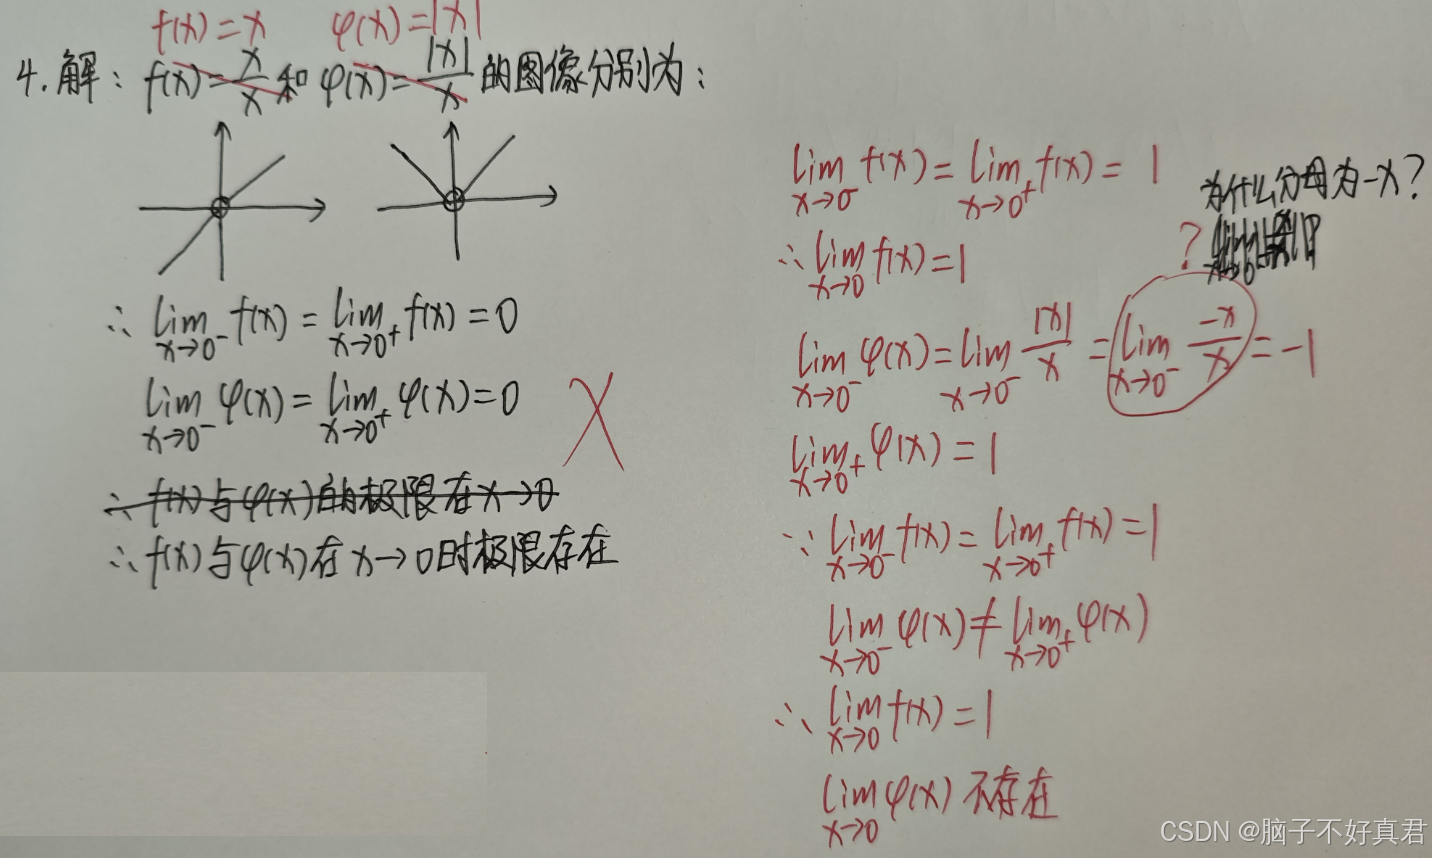 f(x)=x φ(x)=|x|
4.解：f(x)=x/x和φ(x)=|x|/x的图像分别为：
∴ lim x→0⁻ f(x)=lim x→0⁺ f(x)=0
lim x→0⁻ φ(x)=lim x→0⁺ φ(x)=0
∴ f(x)与φ(x)的极限在x→0
∴ f(x)与φ(x)在x→0时极限存在
lim x→0⁻ f(x)=lim x→0⁺ f(x)=1
为什么分母为-x?
?
∴ lim x→0 f(x)=1
lim x→0⁻ φ(x)=lim x→0⁻ |x|/x=lim x→0⁻ -x/x=-1
lim x→0⁺ φ(x)=1
∵ lim x→0⁻ f(x)=lim x→0⁺ f(x)=1
lim x→0⁻ φ(x)≠lim x→0⁺ φ(x)
∴ lim x→0 f(x)=1
lim x→0 φ(x)不存在
CSDN @脑子不好真君